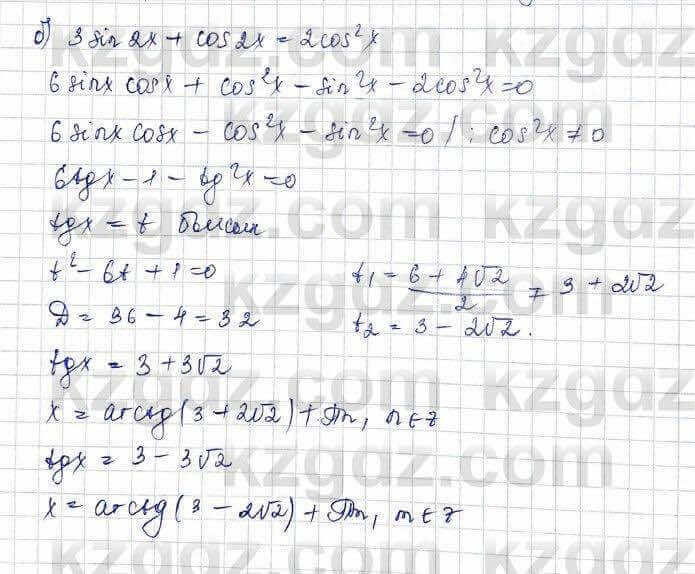 б) 3 sin 2x + cos 2x = 2cos²x
6 sinx cosx + cos²x - sin²x - 2cos²x = 0
6 sinx cosx - cos²x - sin²x = 0 / : cos²x ≠ 0
6tgx - 1 - tg²x = 0
tgx = t болсын
t² - 6t + 1 = 0
D = 36 - 4 = 32
t₁ = (6 + 4√2)/2 = 3 + 2√2
t₂ = 3 - 2√2.
tgx = 3 + 3√2
x = arctg(3 + 2√2) + πn, n ∈ z
tgx = 3 - 3√2
x = arctg(3 - 2√2) + πn, n ∈ z
kzgdz.com